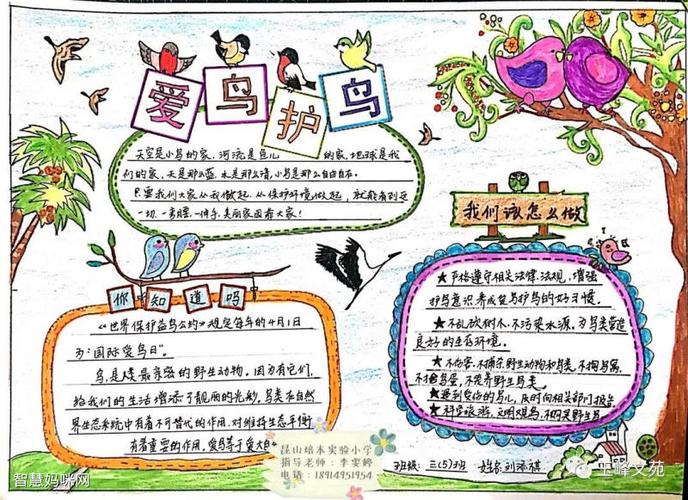 爱鸟护鸟
天空是小鸟的家，河流是鱼儿的家，地球是我
们的家，天是那么蓝，水是那么清，小鸟是那么自由自在。
只要我们大家从我做起，从保护环境做起，就能看到这
一切，
美丽家园
大家！
我们该怎么做
★严格遵守相关法律、法规，增强
护鸟意识，养成爱鸟护鸟的好习惯。
★不乱砍树木，不污染水源，为鸟类营造
良好的生存环境。
★不伤害、不捕杀野生动物和鸟类，不掏鸟窝，
不掏鸟蛋，不笼养野生鸟类
★遇到受伤的鸟儿，及时向相关部门报告
★科学旅游，文明观鸟，不打扰野生鸟
你知道吗
《世界保护益鸟公约》规定每年的4月1日
为“国际爱鸟日”。
鸟，是人类最亲密的野生动物。因为有它们，
给我们的生活增添了靓丽的光彩，鸟类在自然
界生态系统中有着不可替代的作用，对维持生态平衡
有着重要的作用，爱鸟等于爱大自
昆山培本实验小学
指导老师：李雯婷
电话：18914951954
班级：三(5)班 姓名：刘添祺
智慧妈咪网
玉峰文苑